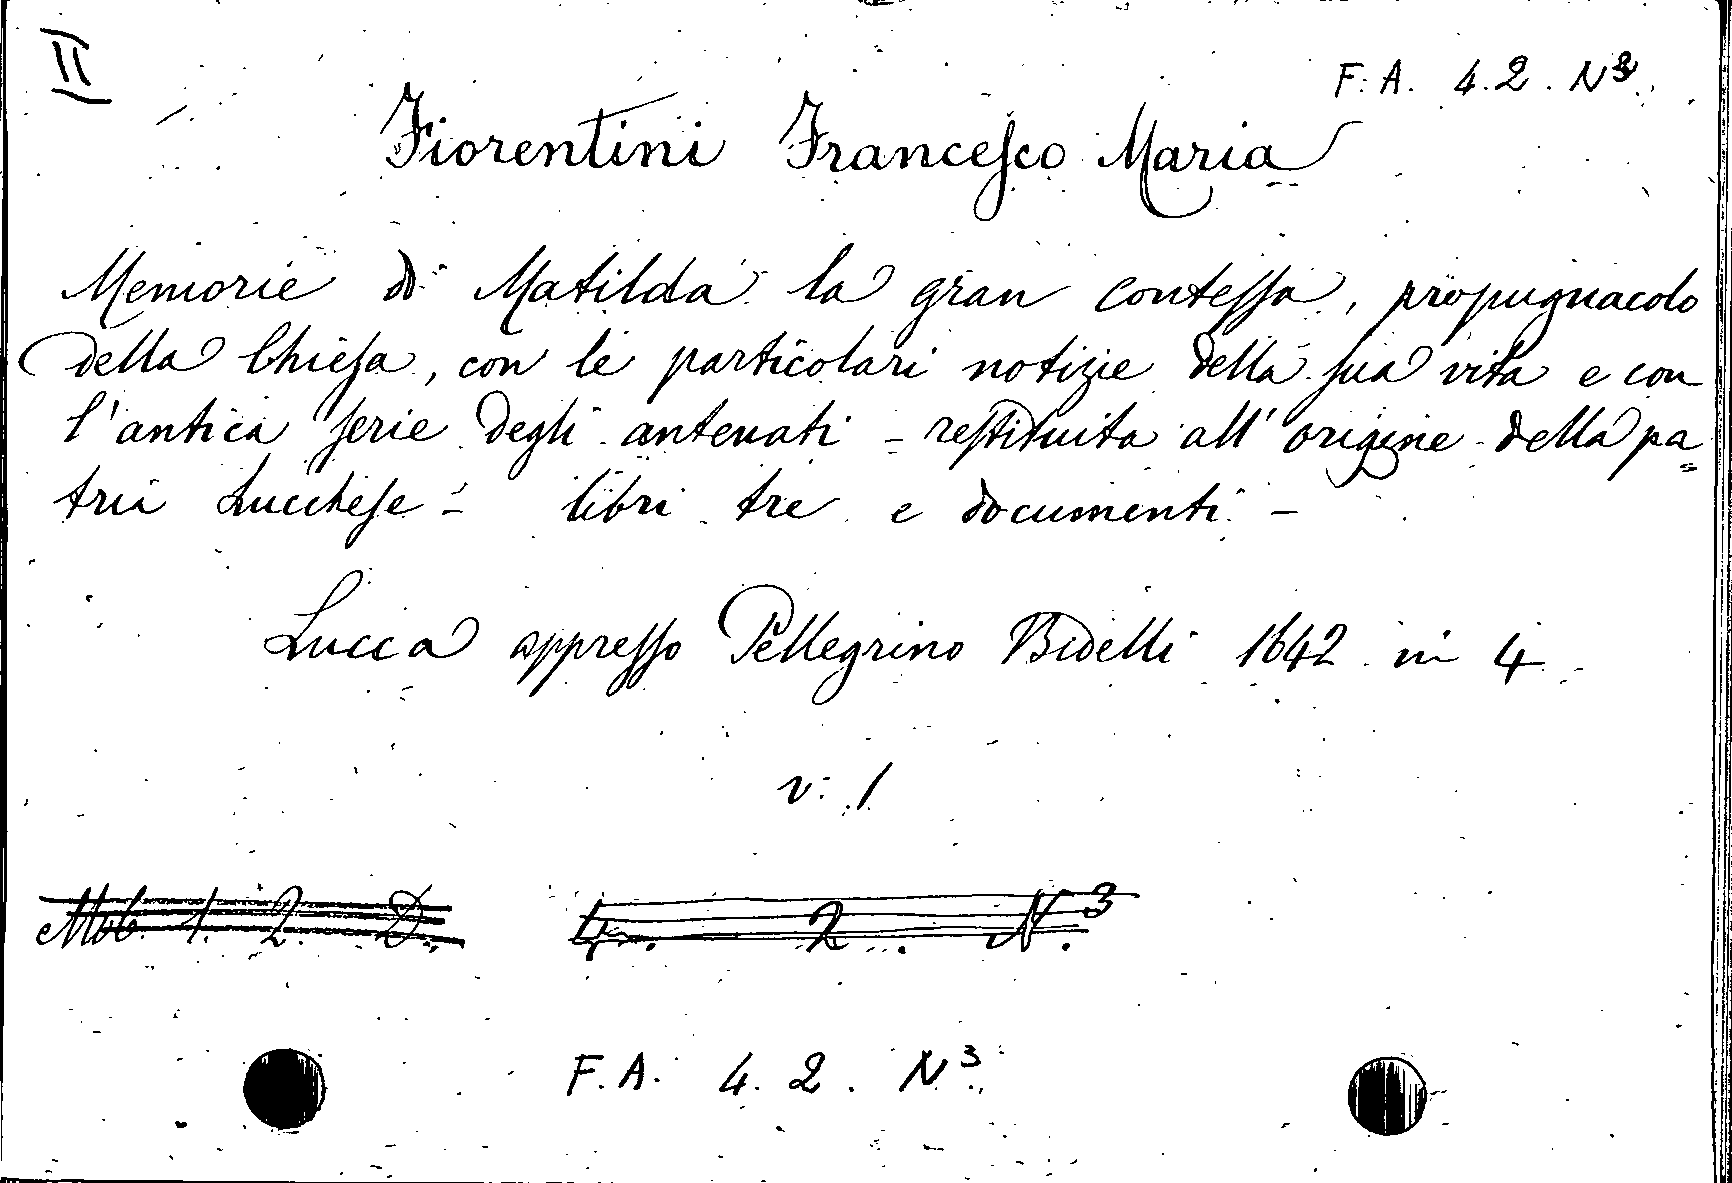 II
F. A. 4. 2. N 3.
Fiorentini Francesco Maria
Memorie di Matilda la gran contessa, propugnacolo
della Chiesa, con le particolari notizie della sua vita e con
l'antica serie degli antenati - restituita all' origine della pa
tria Lucchese - libri tre e documenti -
Lucca appresso Pellegrino Bidelli 1642 in 4
v. 1
Mob. 1. 2. D. 4. 2. N. 3
F. A. 4. 2. N 3.